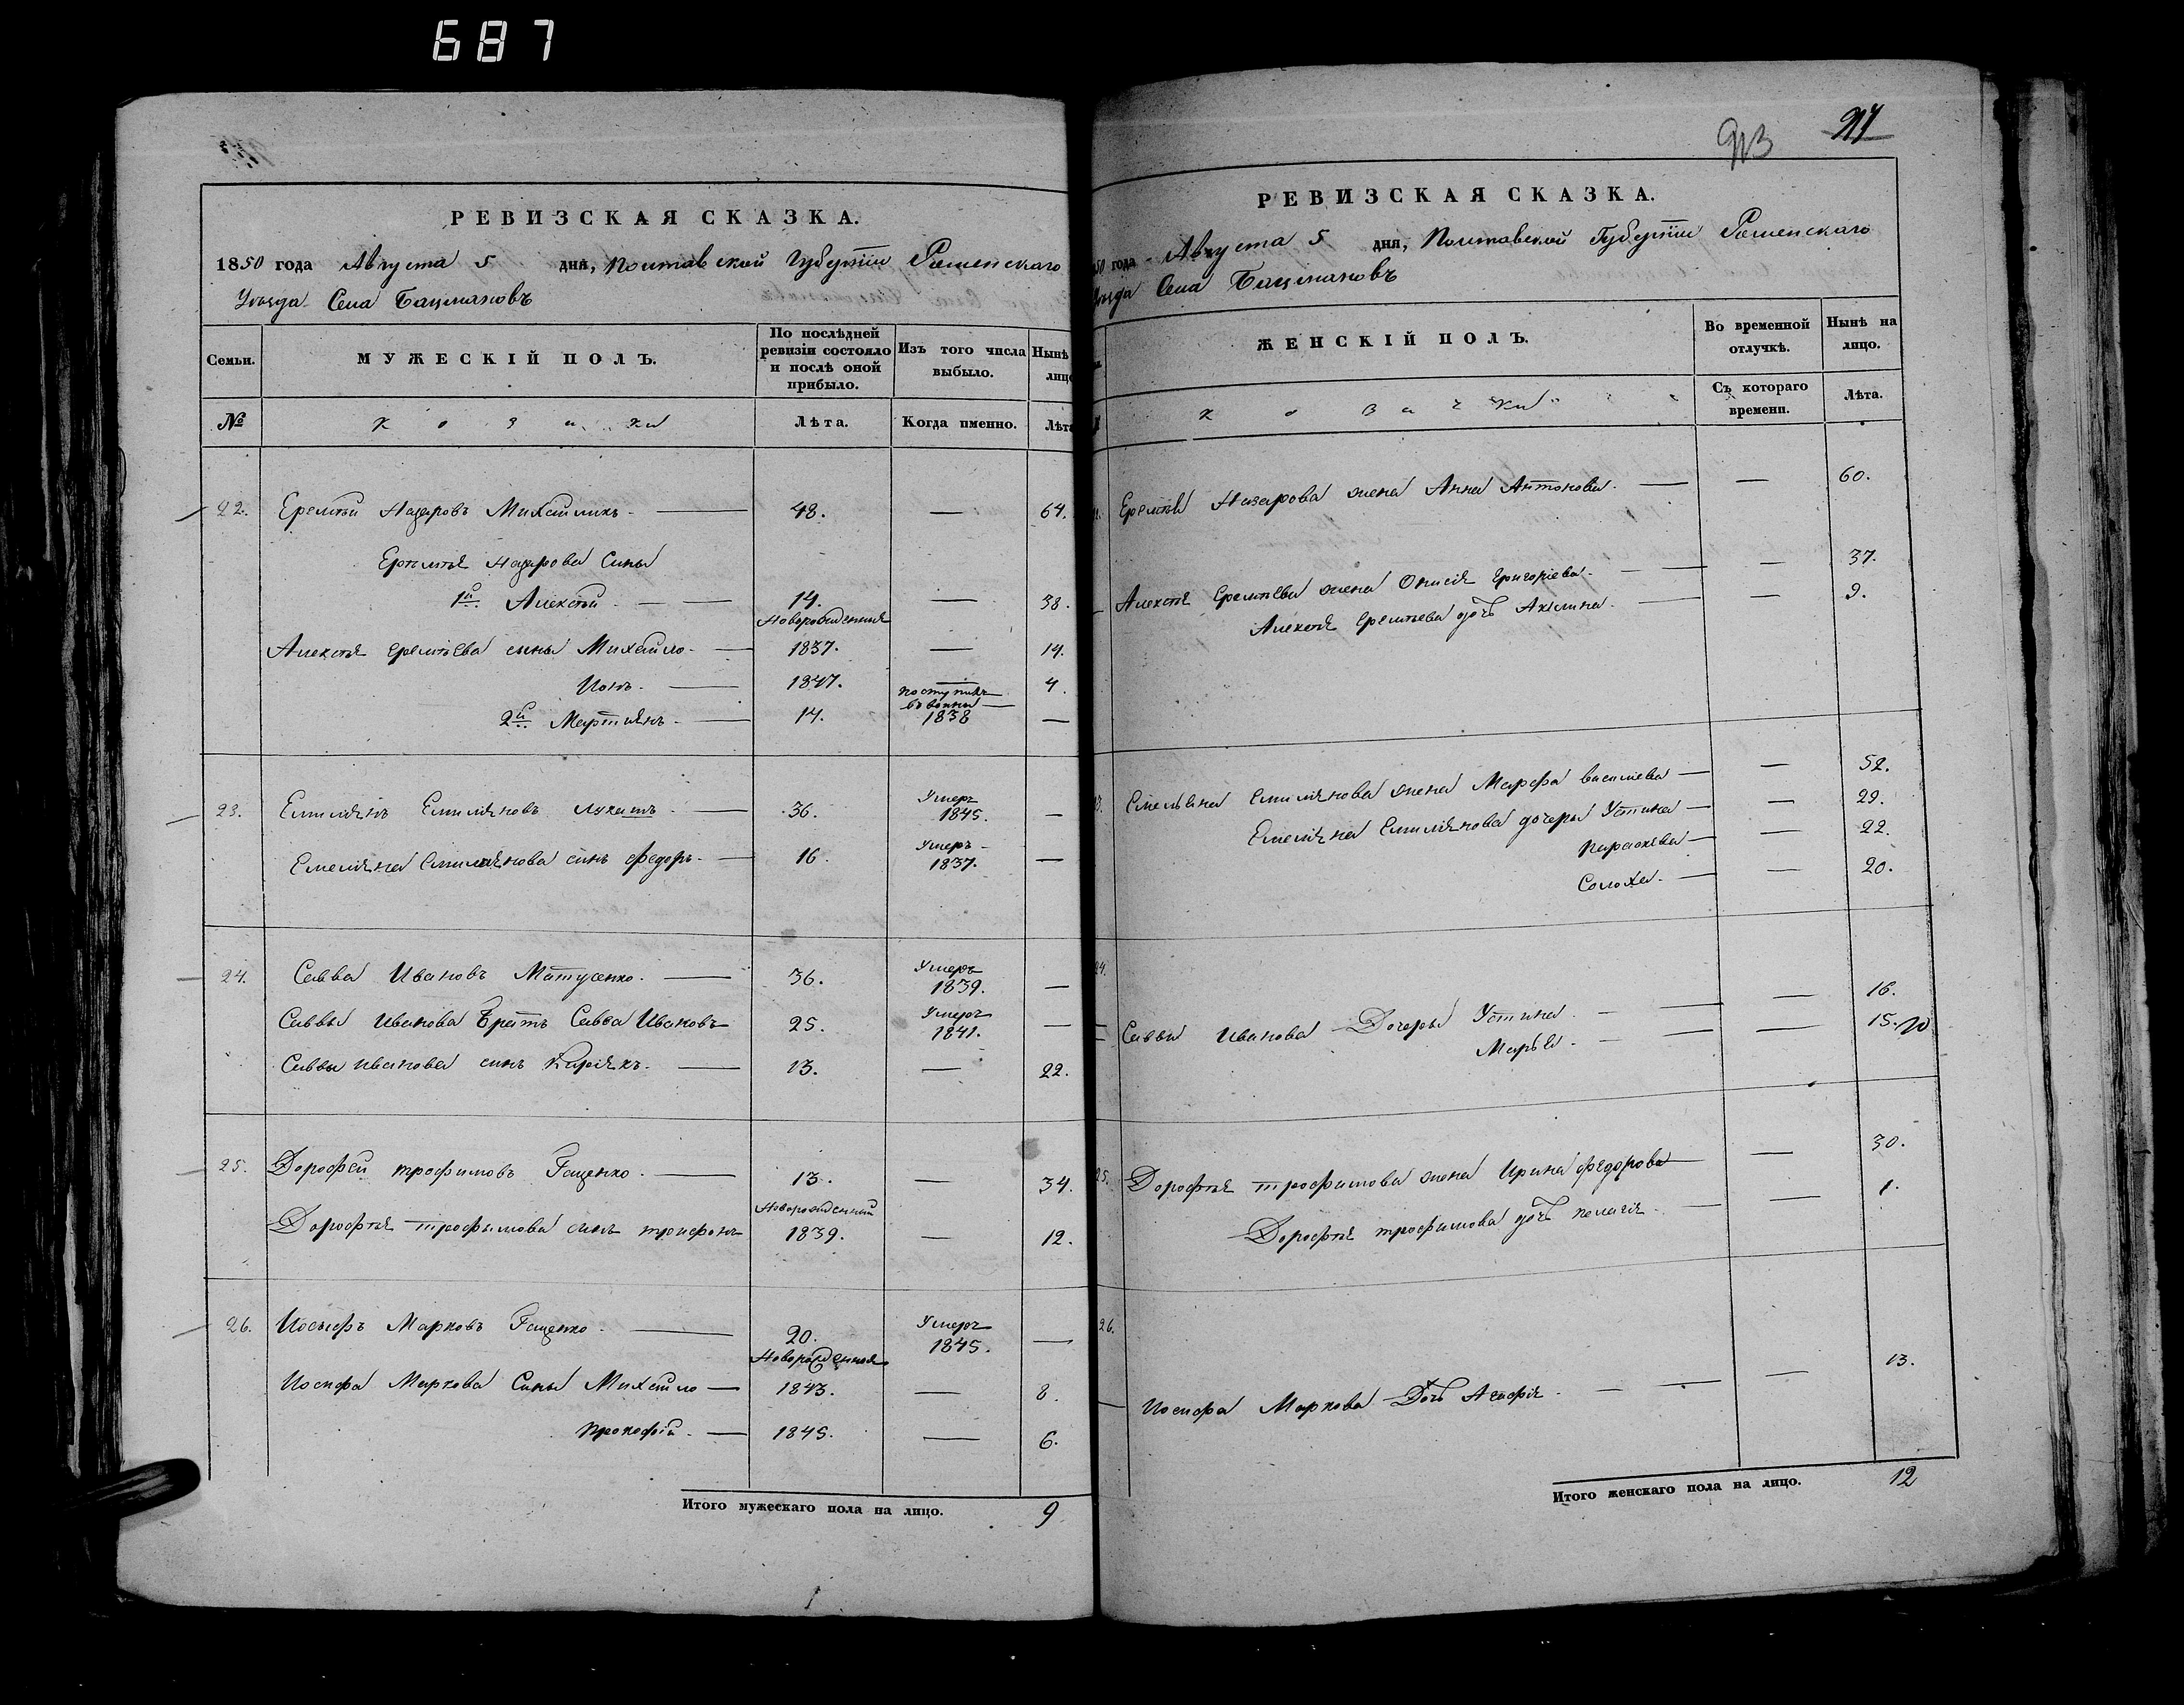 687
РЕВИЗСКАЯ СКАЗКА.
1850 года Августа 5 дня, Полтавской Губерніи Роменскаго
Уѣзда Села Бацмановъ
Семьи. МУЖЕСКІЙ ПОЛЪ. По послѣдней ревизіи состояло и послѣ оной прибыло. Изъ того числа выбыло. Нынѣ лицо
№ Козаки Лѣта. Когда именно. Лѣта
22. Еремѣй Назаровъ Михайликъ. 48. — 64.
Еремѣя Назарова Сыны
1й Алексѣй. 14. — 38.
Новорожденныя
Алексѣя Еремѣева сыны Михайло. 1837. — 14.
Іонъ. 1847. — 4.
поступилъ
2й Мартынъ. 14. 1838 —
23. Емиліянъ Емиліяновъ Лукашъ. 36. Умеръ 1845. —
Емеліяна Емиліянова сынъ Федоръ. 16. Умеръ 1837. —
24. Савва Ивановъ Матусенко. 36. Умеръ 1839. —
Саввы Иванова Братъ Савва Ивановъ 25. Умеръ 1841. —
Саввы Иванова сынъ Киріякъ. 13. — 22.
25. Дорофей Трофимовъ Гаценко. 13. — 34.
Новорожденный
Дорофѣя Трофимова сынъ Трифонъ 1839. — 12.
26. Иосифъ Марковъ Гаценко. 20. Умеръ 1845. —
Новорожденныя
Иосифа Маркова Сыны Михайло 1843. — 8.
Прокофій. 1845. — 6.
Итого мужескаго пола на лицо. 9
213 211
РЕВИЗСКАЯ СКАЗКА.
50 года Августа 5 дня, Полтавской Губерніи Роменскаго
Уѣзда Села Бацмановъ
ЖЕНСКІЙ ПОЛЪ. Во временной отлучкѣ. Нынѣ на лицо.
Козачки Съ котораго времени. Лѣта.
Еремѣя Назарова жена Анна Антонова. — 60.
Алексѣя Еремѣева жена Онисія Григоріева. — 37.
Алексѣя Еремѣева дочь Акилина. — 9.
23. Емельяна Емиліянова жена Марфа Василіева — 52.
Емеліяна Емиліянова дочеры Устина — 29.
Параскева — 22.
Солоха. — 20.
24.
Саввы Иванова Дочеры Устина. — 16.
Марья. — 15.
25. Дорофѣя Трофимова жена Ирина Федорова — 30.
Дорофѣя Трофимова дочь Пелагія. — 1.
26.
Иосифа Маркова Дочь Агафія. — 13.
Итого женскаго пола на лицо. 12